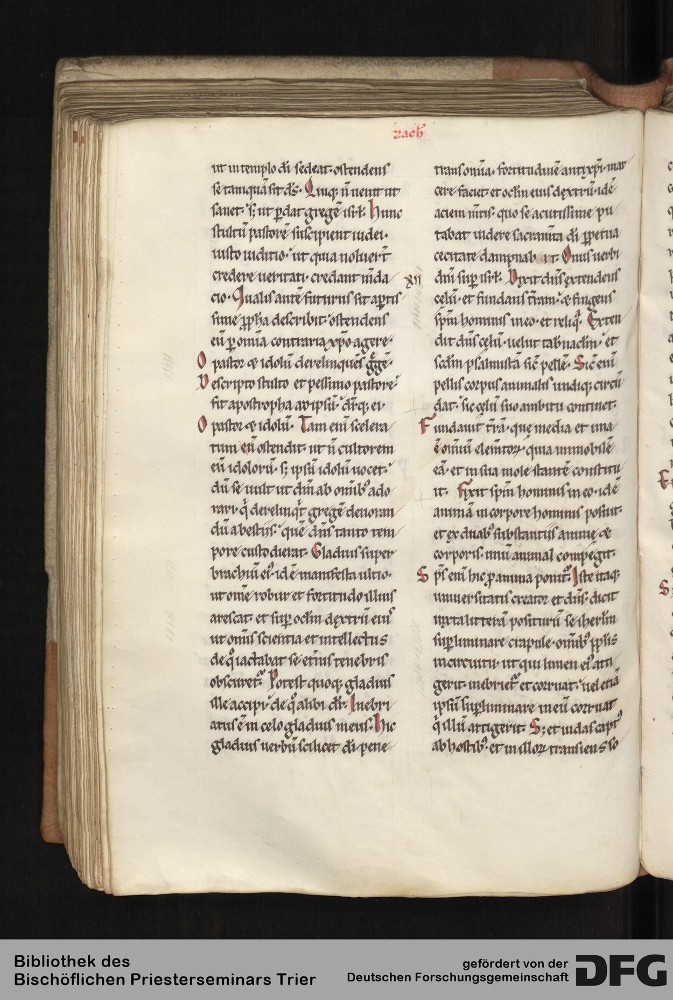 zach̄
ut in templo dī sedeat. ostendens
se tamquā sit dš. Quiq; n̄ uenit ut
sanet. s; ut ꝑdat gregē isrł. Hunc
stultū pastorē suscipient iudei.
iusto iuditio. ut quia noluer̄t
credere ueritati. credant mēda
cio. Qualis autē futurus sit aꝑtis
sime ꝓpha describit. ostendens
eū ꝑ omīa contraria xp̄o agere.
O pastor & idolū derelinquēs gͥgē.
Descripto stulto et pessimo pastore.
fit apostropha ad ipsū. dr̄q; ei.
O pastor & idolū. Tam eni scelera
tum eū ostendit. ut n̄ cultorem
eū idolorū. s; ipsū idolū uocet.
dū se uult ut dm̄ ab omīb; ado
rari. q̇ derelinqͥt gregē deuoran
dū a bestiis. quē dn̄s tanto tem
pore custodierat. Gladius super
brachiū eiꝰ. id ē manifesta ultio.
ut omē robur et fortitudo illius
arescat. et suꝑ oclm̄ dextrū eiuˢ
ut omīs scientia et intellectus
de qͦ iactabat se. et̄nis tenebris
obscuret᷑. Potest quoq; gladius
ille accipi. de qͦ alibi dr̄. Inebri
atus ē in celo gladius meus. Hic
gladius uerbū scilicet dī. pene
trans omīa. fortitudinē antixp̄i. mar
cere faciet. et oclm̄ eius dextrū. id ē
aciem mn̄tis. quo se acutissime pu
tabat uidere sacramta dī ꝑpetua
cecitate dampnab it. Onus uerbi
XII dn̄i suꝑ isrł. Dixit dn̄s extendens
celū. et fundans t̄ram. & fingens
spm̄ hominis in eo. et reliq̇. Exten
dit dn̄s celū. uelut tab̄naclm̄. et
scd̄m psalmistā sic pellē. Sic eni
pellis corpus animalis undiq; circū
dat. sic celū suo ambitu continet.
Fundauit t̄rā. que media et ima
ē omiū elemtorꝝ. quia immobilē
eā. et in sua mole stantē constitu
it. Fixit spm̄ hominis in eo. id ē
animā in corpore hominis posuit.
et ex duabꝰ substantiis animę &
corporis. unū animal compegit.
Spc̄ eni hic ꝓ anima ponit᷑. Iste itaq;
uniuersitatis creator et dn̄s. dicit
iuxta litterā positurū se ihrłm
suꝑliminare crapulę. omīb; ꝓplis
in circuitu. ut qui limen eiꝰ atti
gerit. inebriet᷑ et corruat. uel etiā
ipsū suꝑliminare in eū corruat
q̇ illū attigerit. S; et iudas captꝰ
ab hostibꝰ. et in illoꝝ transiens so
Bibliothek des
Bischöflichen Priesterseminars Trier
gefördert von der
Deutschen Forschungsgemeinschaft
DFG